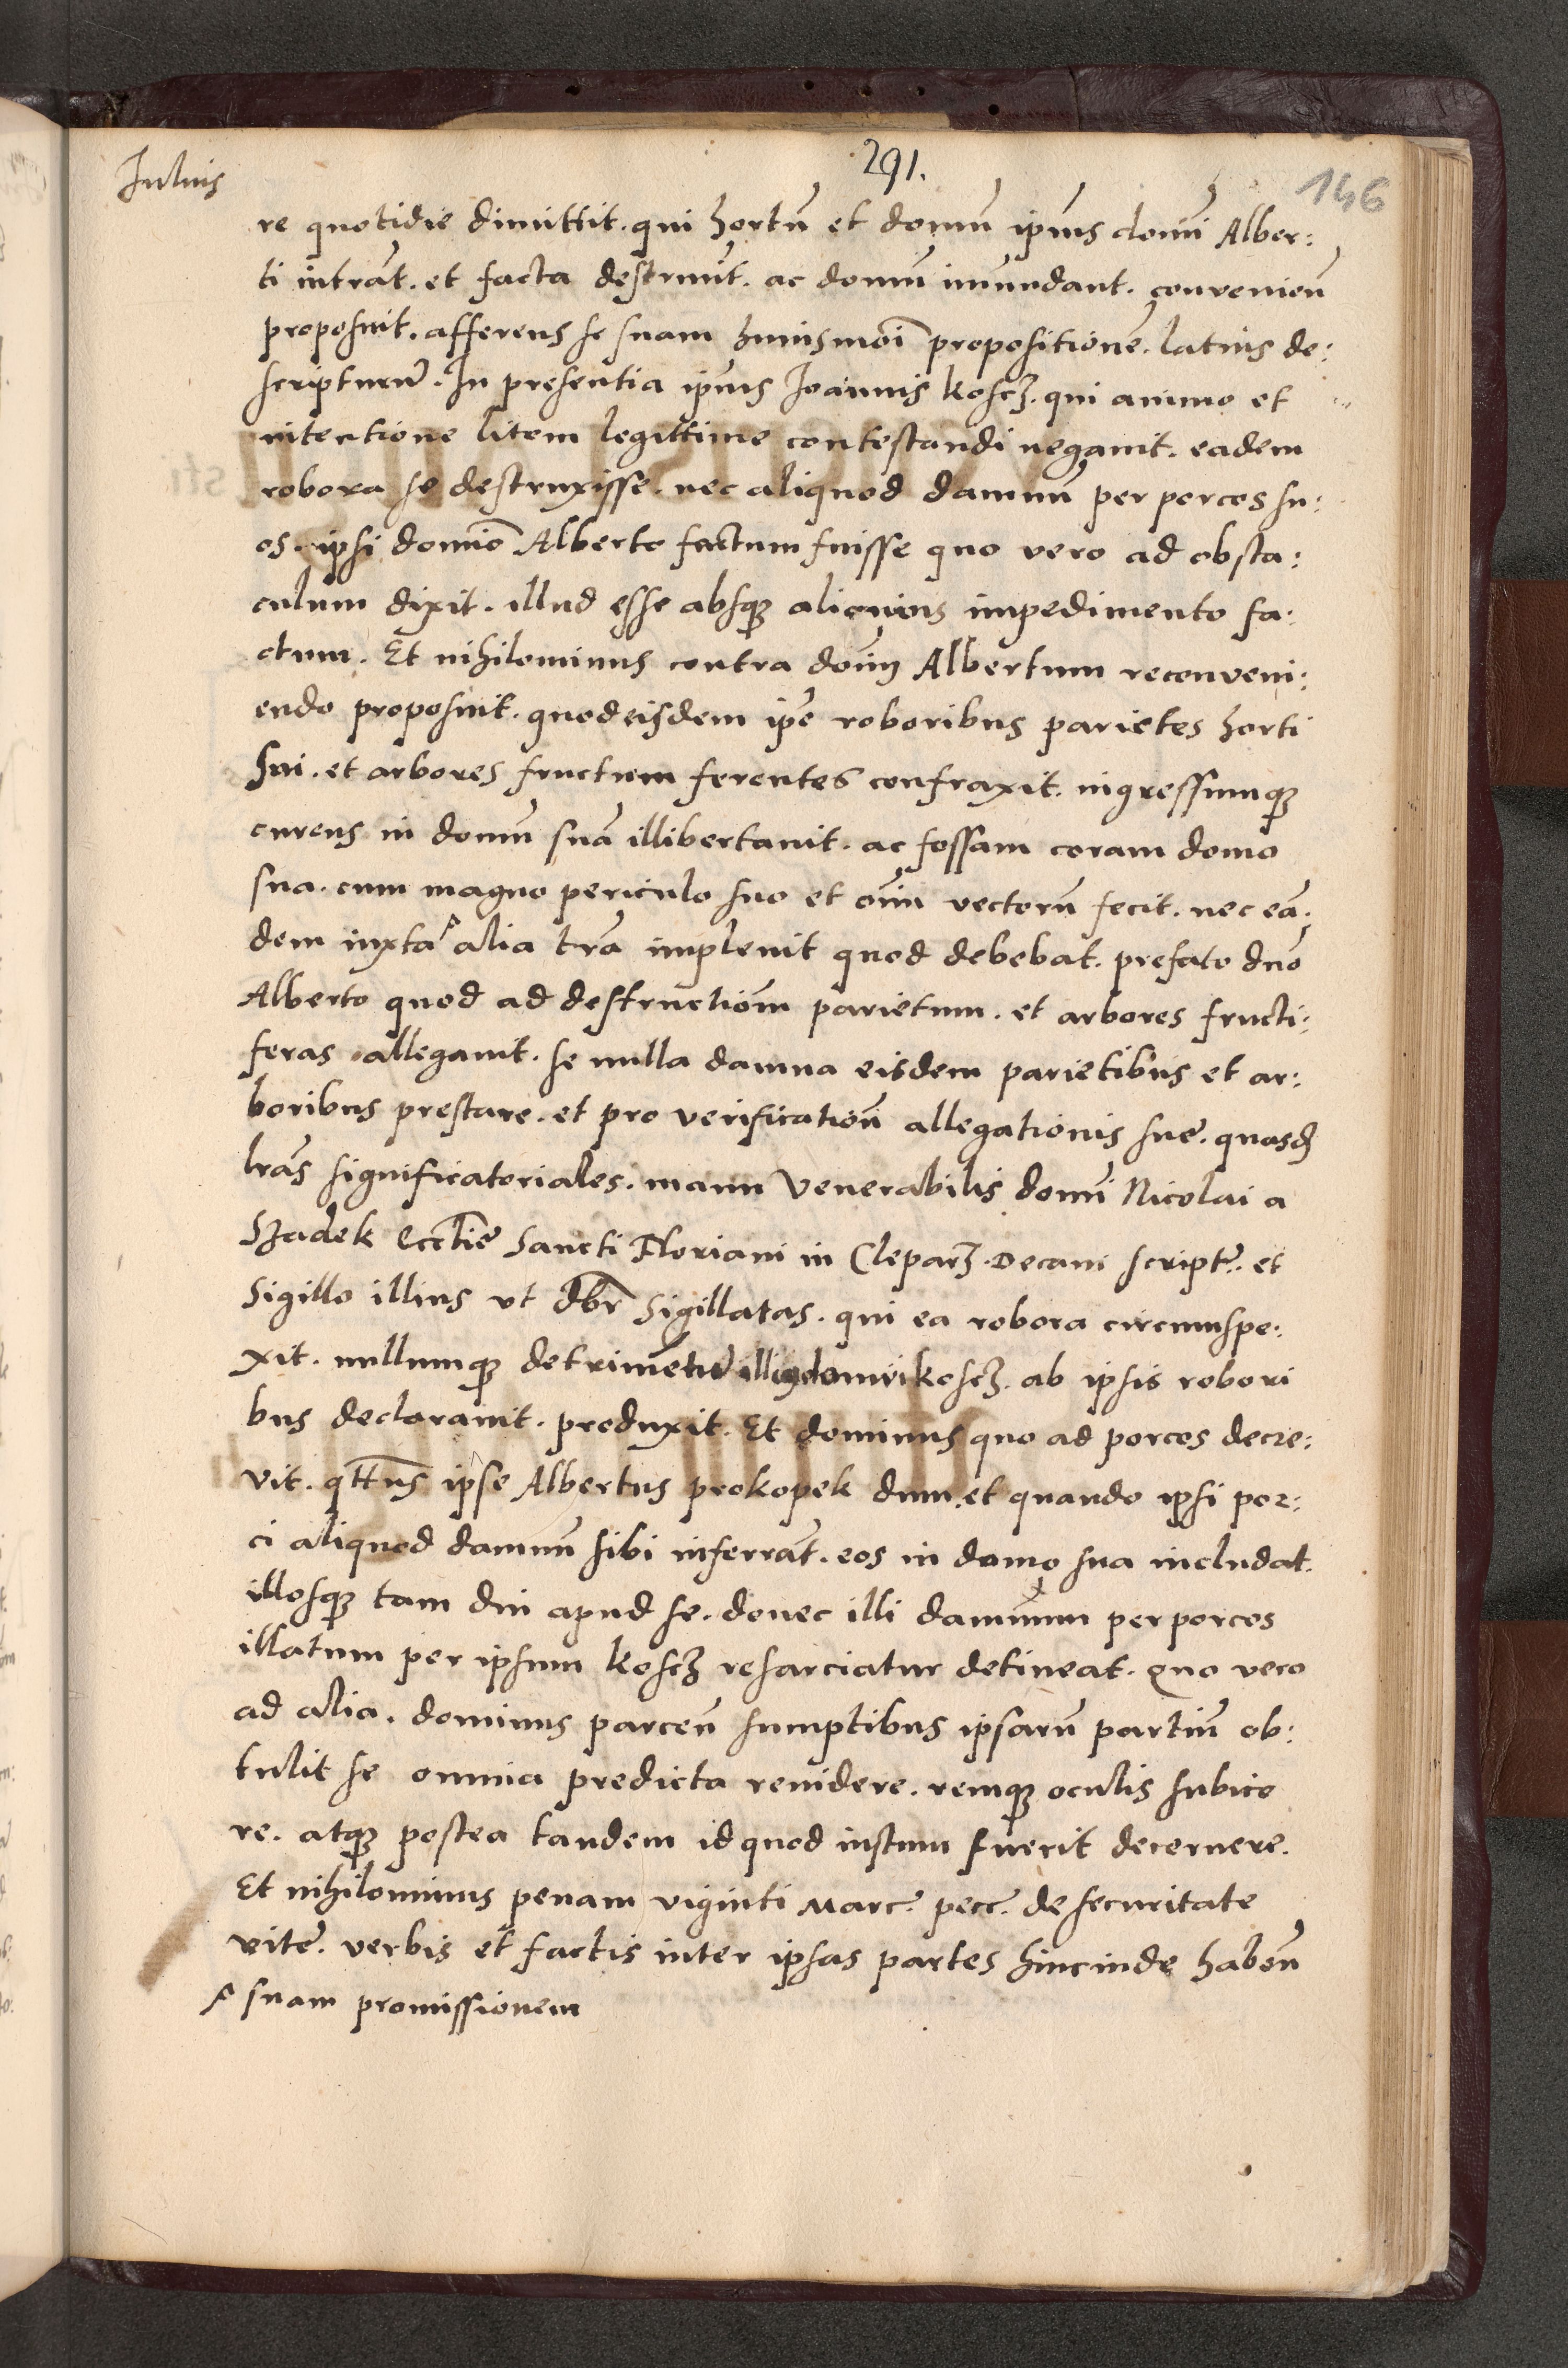 Julius
291.
146
re quotidie dimittit. qui hortū et domū ipīus domī Alber:
ti intrāt. et facta destruūt. ac domū inmundant. convenien̄
proposuit. afferens se suam huiusmōi propositionē. latius de:
scripturū. In presentia ipīus Joannis Koscz. qui animo et
intentione litem legittime contestandi negavit. eadem
robora se destruxisse. nec aliquod damnū per porcos su:
os. ipsi domīo Alberto factum fuisse quo vero ad obsta:
culum dixit. illud esse absqȝ alicuius impedimento fa:
ctum. Et nihilominus contra domī Albertum reconveni:
endo proposuit. quod eisdem ipē roboribus parietes horti
sui. et arbores fructum ferentes confraxit. ingressumqȝ
currens in domū suā illibertavit. ac fossam coram domo
sua. cum magno periculo suo et om̄i vectorū fecit. nec eā:
dem iuxta alia trā implevit quod debebat. prefato dn̄o
Alberto quod ad destructiom̄ parietum. et arbores fructi:
feras allegavit. se nulla damna eisdem parietibus et ar:
boribus prestare. et pro verification̄ allegationis sue. quasd
lrās significatoriales. manu Venerabilis domī Nicolai a
Szadek Eccl̄ie Sancti Floriani in Cleparz. Decani script. et
Sigillo illius ut dbr̄ Sigillatas. qui ea robora circumspe:
xit. nullumqȝ detrimētū illi domui Koscz. ab ipsis robori
bus declaravit. produxit. Et dominus quo ad porcos decre:
vit. qtt̄ns ipse Albertus prokopek dum. et quando ipsi por:
ci aliquod damnū sibi inferrāt. eos in domo sua includat.
illosqȝ tam diu apud se. donec illi damnum per porcos
illatum per ipsum Koscz resarciatur detineat. Quo vero
ad alia. dominus parcen̄ sumptibus ipsarū partiū ob:
tulit se omnia predicta revidere. remqȝ oculis subice
re. atqȝ postea tandem id quod iustum fuerit decernere.
Et nihilominus penam viginti Marc. pecc. de securitate
vite. verbis et factis inter ipsas partes hincinde haben̄
suam promissionem